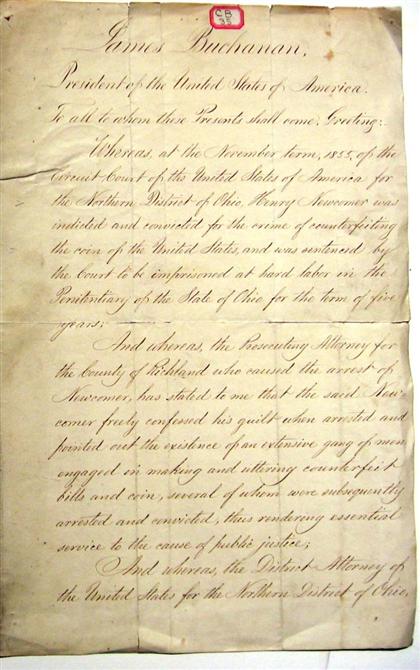 CB
35
James Buchanan,
President of the United States of America.
To all to whom these Presents shall come, Greeting:
Whereas, at the November term, 1855, of the
Circuit Court of the United States of America for
the Northern District of Ohio, Henry Newcomer was
indicted and convicted for the crime of counterfeiting
the coin of the United States, and was sentenced by
the Court to be imprisoned at hard labor in the
Penitentiary of the State of Ohio for the term of five
years;
And whereas, the Prosecuting Attorney for
the County of Richland who caused the arrest of
Newcomer, has stated to me that the said New-
comer freely confessed his guilt when arrested and
pointed out the existence of an extensive gang of men
engaged in making and uttering counterfeit
bills and coin, several of whom were subsequently
arrested and convicted, thus rendering essential
service to the cause of public justice;
And whereas, the District Attorney of
the United States for the Northern District of Ohio,